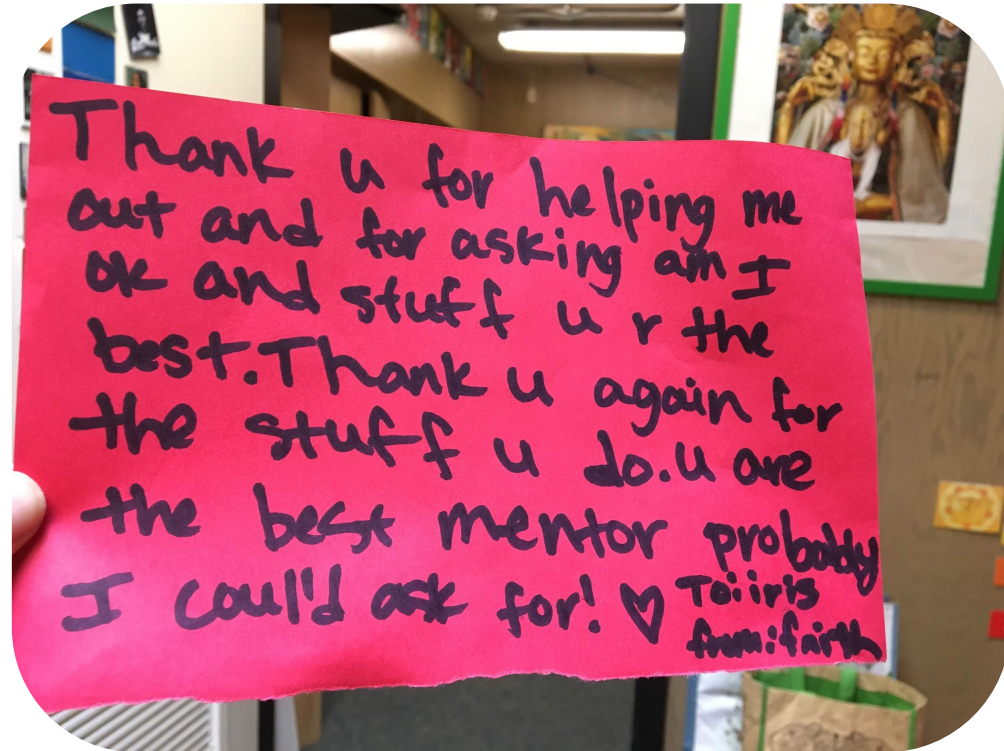 Thank u for helping me
out and for asking am I
ok and stuff u r the
best. Thank u again for
the stuff u do. u are
the best mentor probobly
I coul'd ask for! ♡ To: iris
from: faith